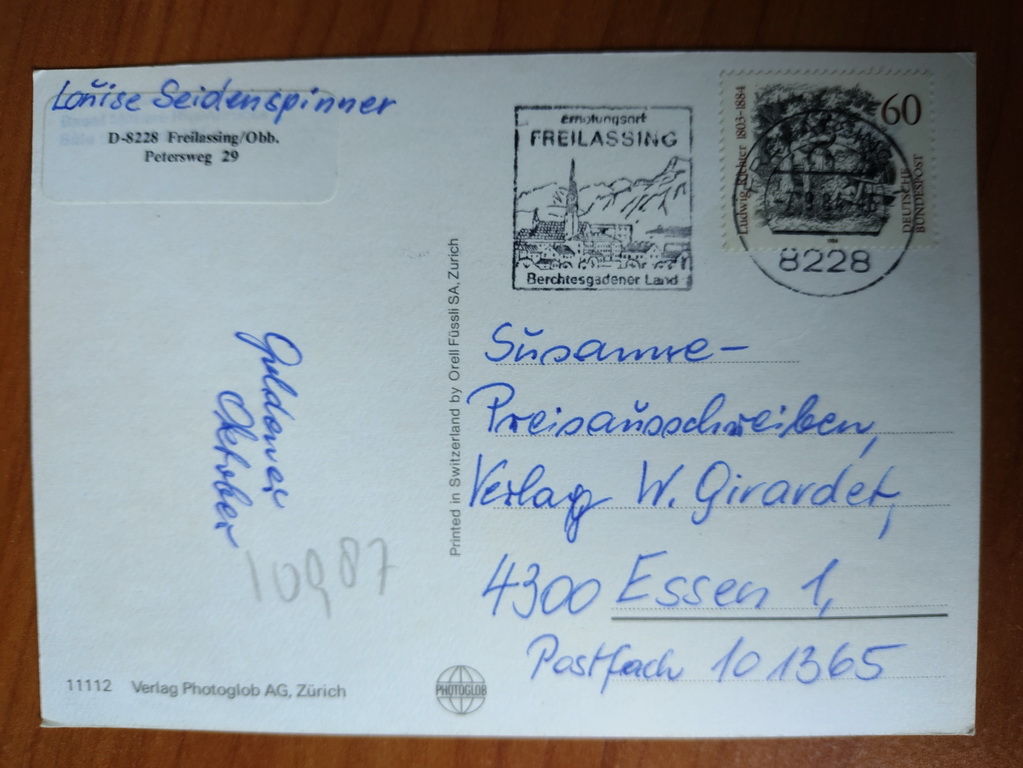 Louise Seidenspinner
D-8228 Freilassing/Obb.
Petersweg 29
Erholungsort
FREILASSING
Berchtesgadener Land
Ludwig Richter 1803-1884
60
DEUTSCHE
BUNDESPOST
8228
Goldener
Oktober
10987
Printed in Switzerland by Orell Füssli SA, Zurich
Susanne-
Preisausschreiben,
Verlag W. Girardet,
4300 Essen 1,
Postfach 10 1365
11112 Verlag Photoglob AG, Zürich
PHOTOGLOB